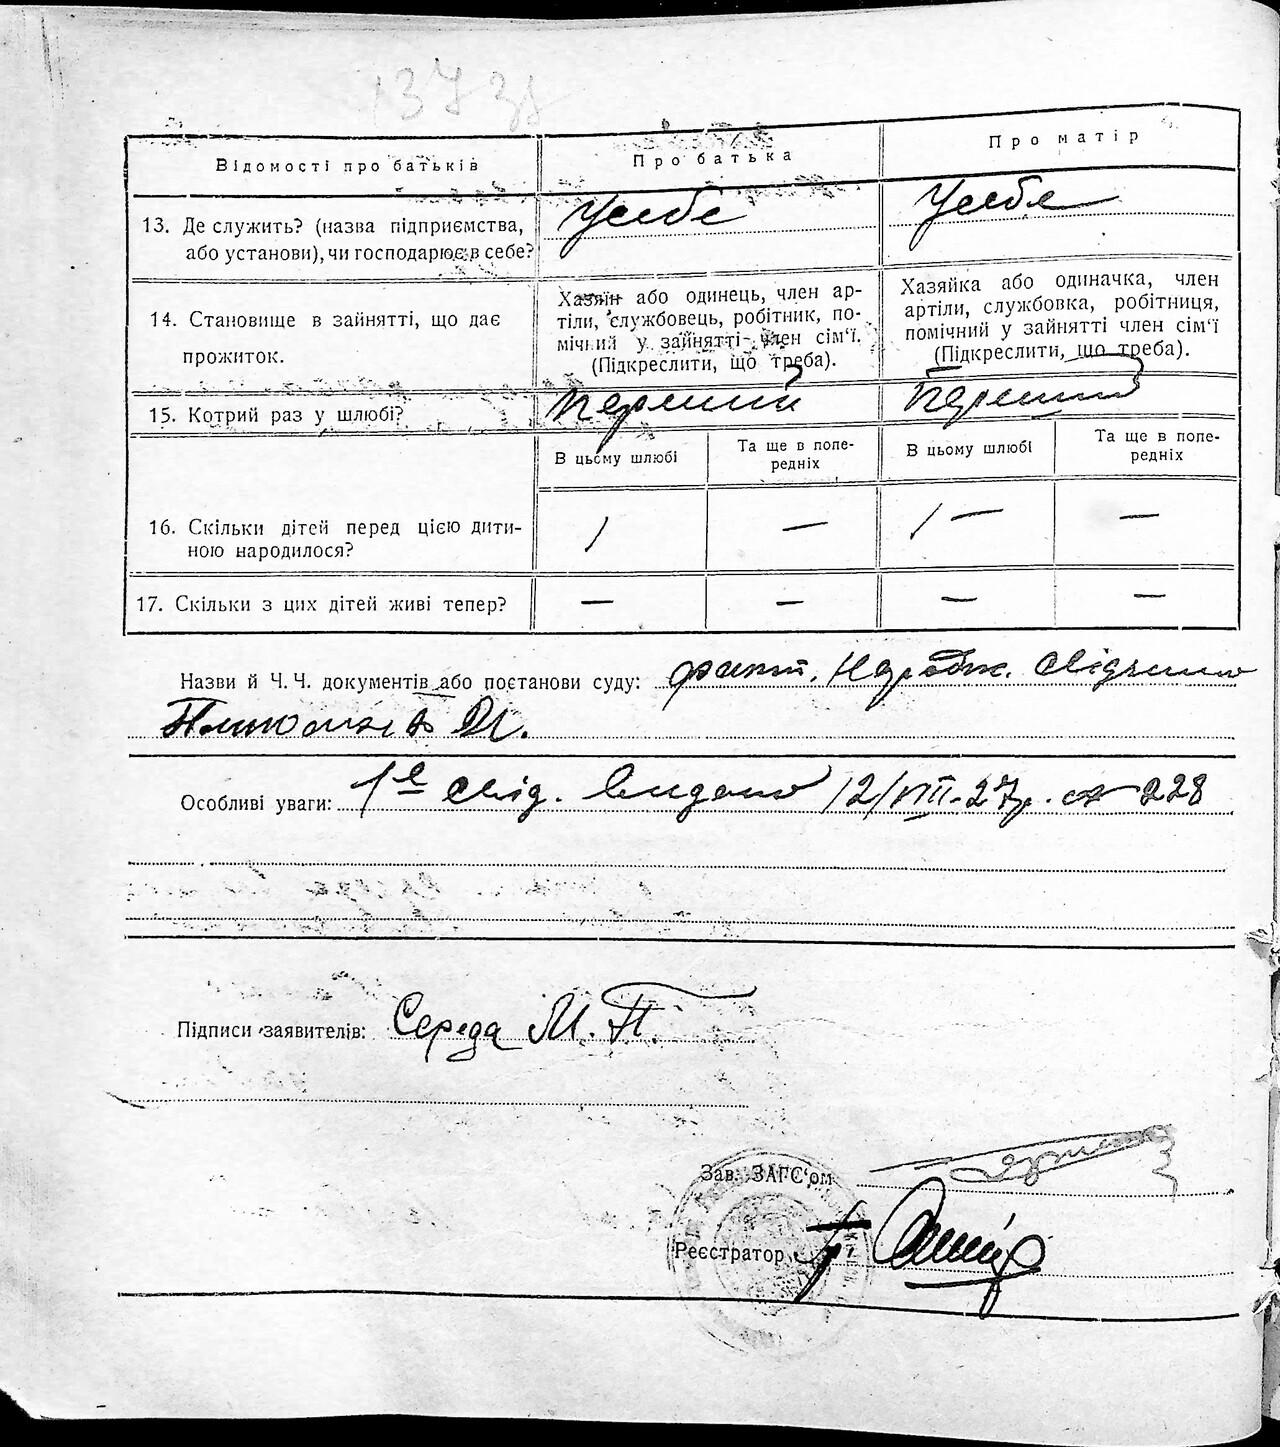 Відомості про батьків
Про батька
Про матір
13. Де служить? (назва підприємства,
або установи), чи господарює в себе?
У себе
У себе
14. Становище в зайнятті, що дає
прожиток.
Хазяїн або одинець, член ар-
тіли, службовець, робітник, по-
мічний у зайнятті член сім'ї.
(Підкреслити, що треба).
Хазяйка або одиначка, член
артіли, службовка, робітниця,
помічний у зайнятті член сім'ї
(Підкреслити, що треба).
15. Котрий раз у шлюбі?
Перший
Перший
В цьому шлюбі
Та ще в попе-
редніх
В цьому шлюбі
Та ще в попе-
редніх
16. Скільки дітей перед цією дити-
ною народилося?
1
—
1 —
—
17. Скільки з цих дітей живі тепер?
—
—
—
—
Назви й Ч. Ч. документів або постанови суду:
Особливі уваги: 1е свід. видано 12/VIII-27р. 228
Підписи заявителів: Середа М. П.
Зав. ЗАГС'ом
Реєстратор